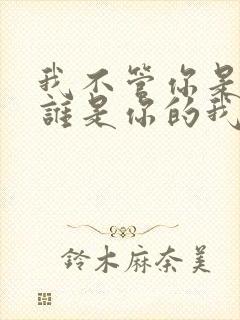 我不管你是
誰是你的我
鈴木麻奈美